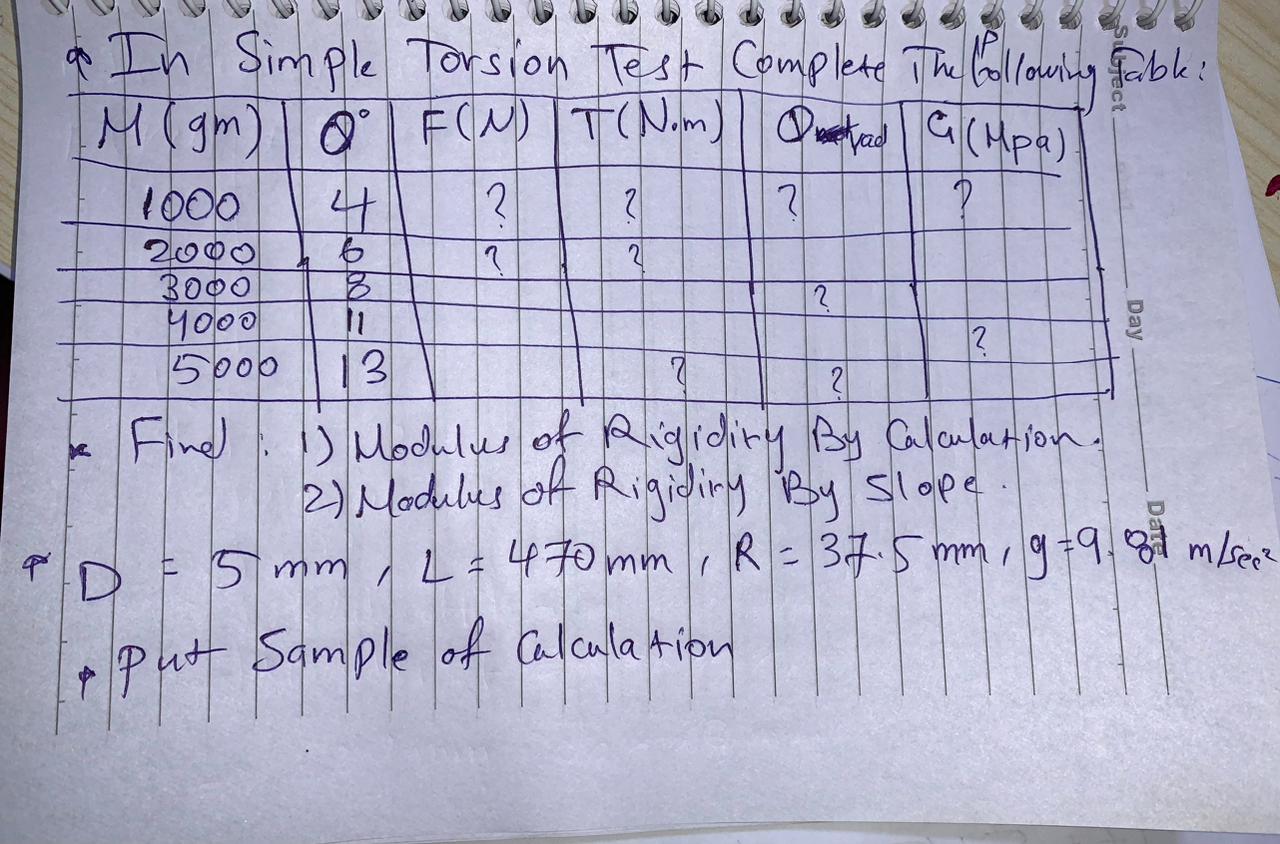 In Simple Torsion Test Complete The following Table:
M (gm) θ° F(N) T(N.m) θ rad G (Mpa)
1000 4 ? ? ? ?
2000 6 ? ?
3000 8 ?
4000 11 ?
5000 13 ? ?
Find : 1) Modulus of Rigidiry By Calculation.
2) Modulus of Rigidiry By Slope.
D = 5 mm , L = 470 mm , R = 37.5 mm , g = 9.81 m/sec²
Put Sample of Calculation
Subject
Day
Date